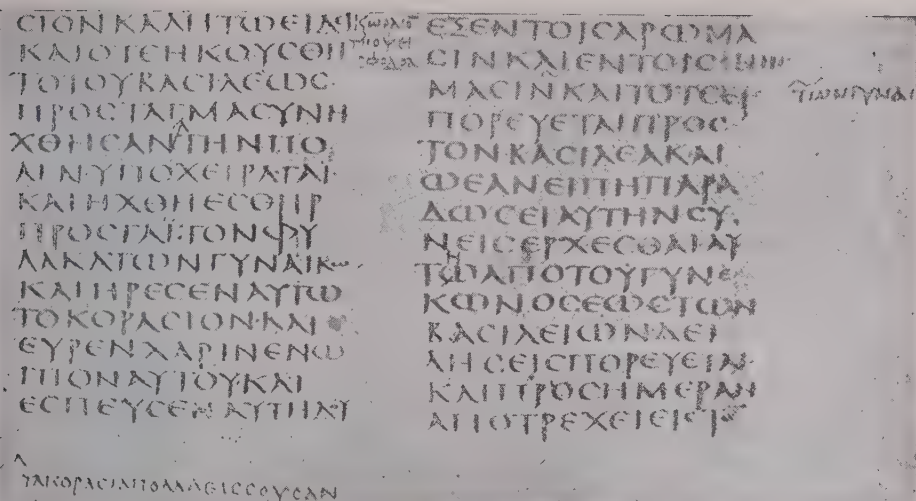 ϹΙΟΝΚΑΛΗΤΩΕΙΔΙ
ΚΑΙΟΤΕΗΚΟΥϹΘΗ
ΤΟΤΟΥΒΑϹΙΛΕΩϹ
ΠΡΟϹΤΑΓΜΑϹΥΝΗ
ΧΘΗϹΑΝΤΗΝΠΟ
ΛΙΝΥΠΟΧΕΙΡΑΓΑΙ·
ΚΑΙΗΧΘΗΕϹΘΗΡ
ΠΡΟϹΓΑΪ·ΤΟΝΦΥ
ΛΑΚΑΤΩΝΓΥΝΑΙΚΩ
ΚΑΙΗΡΕϹΕΝΑΥΤΩ
ΤΟΚΟΡΑϹΙΟΝ·ΚΑΙ
ΕΥΡΕΝΧΑΡΙΝΕΝΩ
ΠΙΟΝΑΥΤΟΥΚΑΙ
ΕϹΠΕΥϹΕΝΑΥΤΗ
ΤΑΚΟΡΑϹΙΑΠΟΛΛΑΕΙϹϹΟΥϹΑΝ
ΕϹΕΝΤΟΙϹΑΡΩΜΑ
ϹΙΝΚΑΙΕΝΤΟΙϹ
ΜΑϹΙΝΚΑΙΤΟΤΕΕΙϹ
ΤΩΝΓΥΝΑΙ
ΠΟΡΕΥΕΤΑΙΠΡΟϹ
ΤΟΝΒΑϹΙΛΕΑΚΑΙ
ΩΕΑΝΕΙΠΗΠΑΡΑ
ΔΩϹΕΙΑΥΤΗΝϹΥ
ΝΕΙϹΕΡΧΕϹΘΑΙΑΥ
ΤΩΑΠΟΤΟΥΓΥΝΕ
ΚΩΝΟϹΕΩϹΤΩΝ
ΒΑϹΙΛΕΙΩΝ·ΔΕΙ
ΛΗϹΕΙϹΠΟΡΕΥΕΙΝ·
ΚΑΙΠΡΟϹΗΜΕΡΑΝ
ΑΠΟΤΡΕΧΕΙΕΙϹ